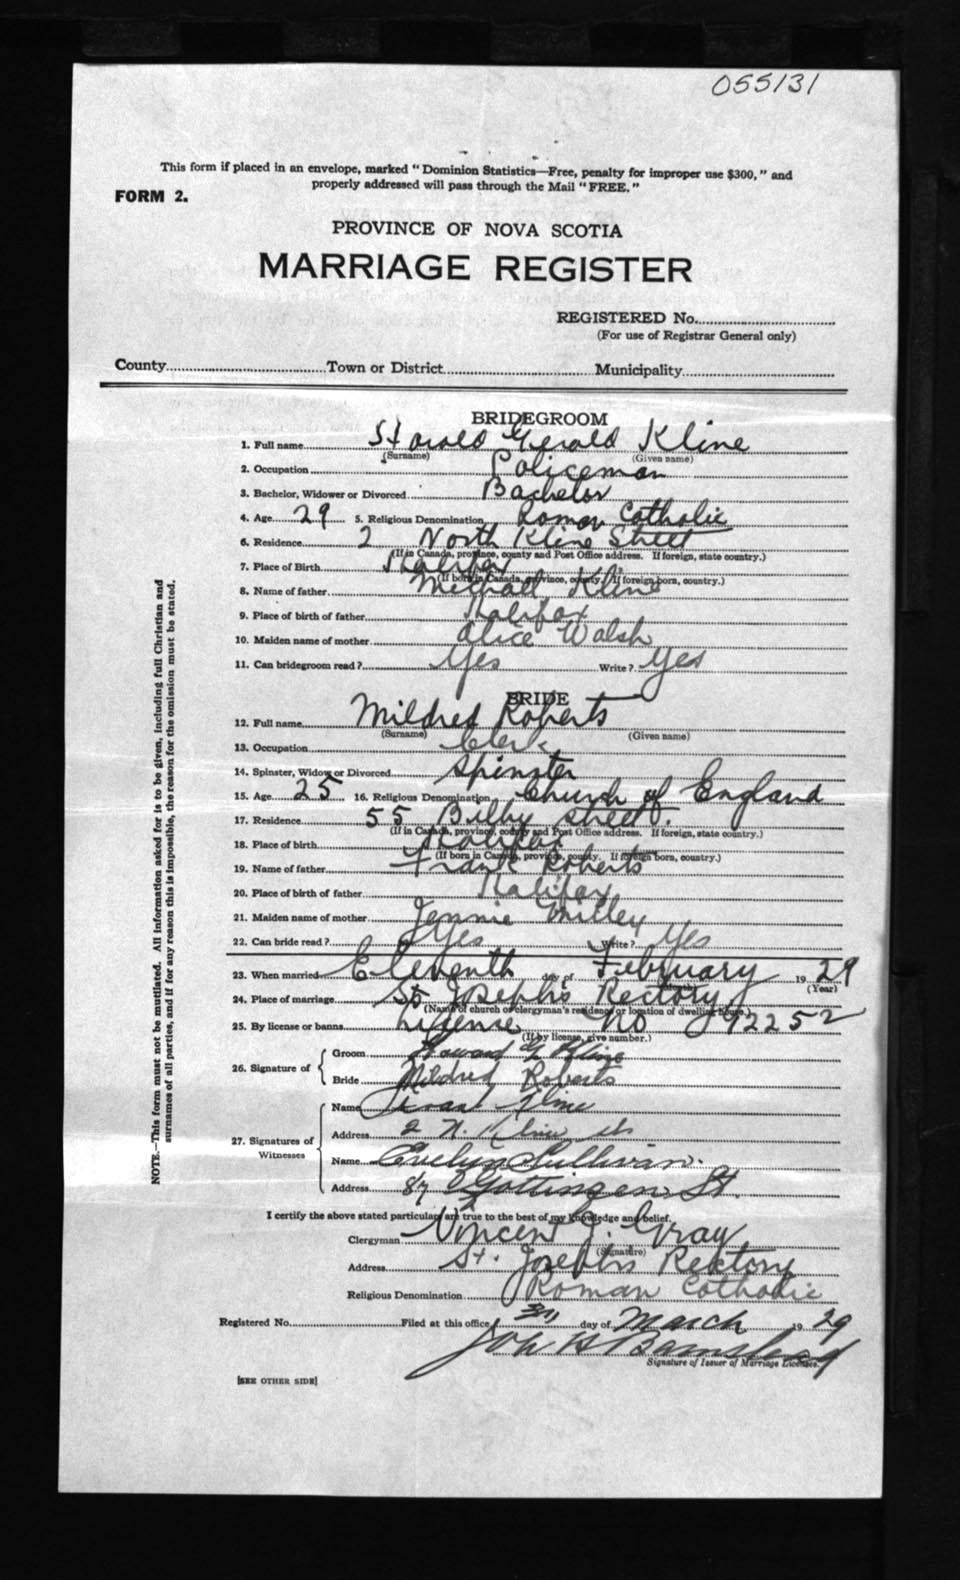 055131
This form if placed in an envelope, marked "Dominion Statistics—Free, penalty for improper use $300," and
properly addressed will pass through the Mail "FREE."
FORM 2.
PROVINCE OF NOVA SCOTIA
MARRIAGE REGISTER
REGISTERED No.
(For use of Registrar General only)
County Town or District Municipality
BRIDEGROOM
1. Full name Harold Gerald Kline
(Surname) (Given name)
2. Occupation Policeman
3. Bachelor, Widower or Divorced Bachelor
4. Age 29 5. Religious Denomination Roman Catholic
6. Residence 2 North Kline Street
(If in Canada, province, county and Post Office address. If foreign, state country.)
7. Place of Birth Halifax
(If born in Canada, province, county. If foreign born, country.)
8. Name of father Michael Kline
9. Place of birth of father Halifax
10. Maiden name of mother Alice Walsh
11. Can bridegroom read? Yes Write? Yes
BRIDE
12. Full name Mildred Roberts
(Surname) (Given name)
13. Occupation Clerk
14. Spinster, Widow or Divorced Spinster
15. Age 25 16. Religious Denomination Church of England
17. Residence 55 Bilby Street.
(If in Canada, province, county and Post Office address. If foreign, state country.)
18. Place of birth Halifax
(If born in Canada, province, county. If foreign born, country.)
19. Name of father Frank Roberts
20. Place of birth of father Halifax
21. Maiden name of mother Jennie Milley
22. Can bride read? Yes Write? Yes
23. When married Eleventh day of February 19 29
(Year)
24. Place of marriage St Joseph's Rectory
(Name of church or clergyman's residence or location of dwelling house.)
25. By license or banns License No 92252
(If by license, give number.)
26. Signature of
Groom G Kline
Bride Mildred Roberts
27. Signatures of Witnesses
Name Kline
Address 2 N. Kline St
Name Evelyn Sullivan.
Address 87 Gottingen St.
I certify the above stated particulars are true to the best of my knowledge and belief.
Clergyman Vincent J. Gray
(Signature)
Address St. Joseph's Rectory
Religious Denomination Roman Catholic
Registered No. Filed at this office day of March 19 29
Signature of Issuer of Marriage Licenses.
[SEE OTHER SIDE]
NOTE.—This form must not be mutilated. All information asked for is to be given, including full Christian and
surnames of all parties, and if for any reason this is impossible, the reason for the omission must be stated.